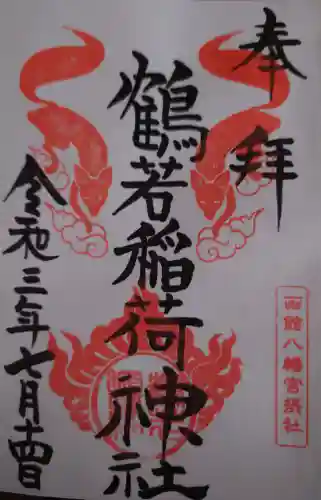 奉拝
鶴若稲荷神社
令和三年七月十四日
函館八幡宮摂社